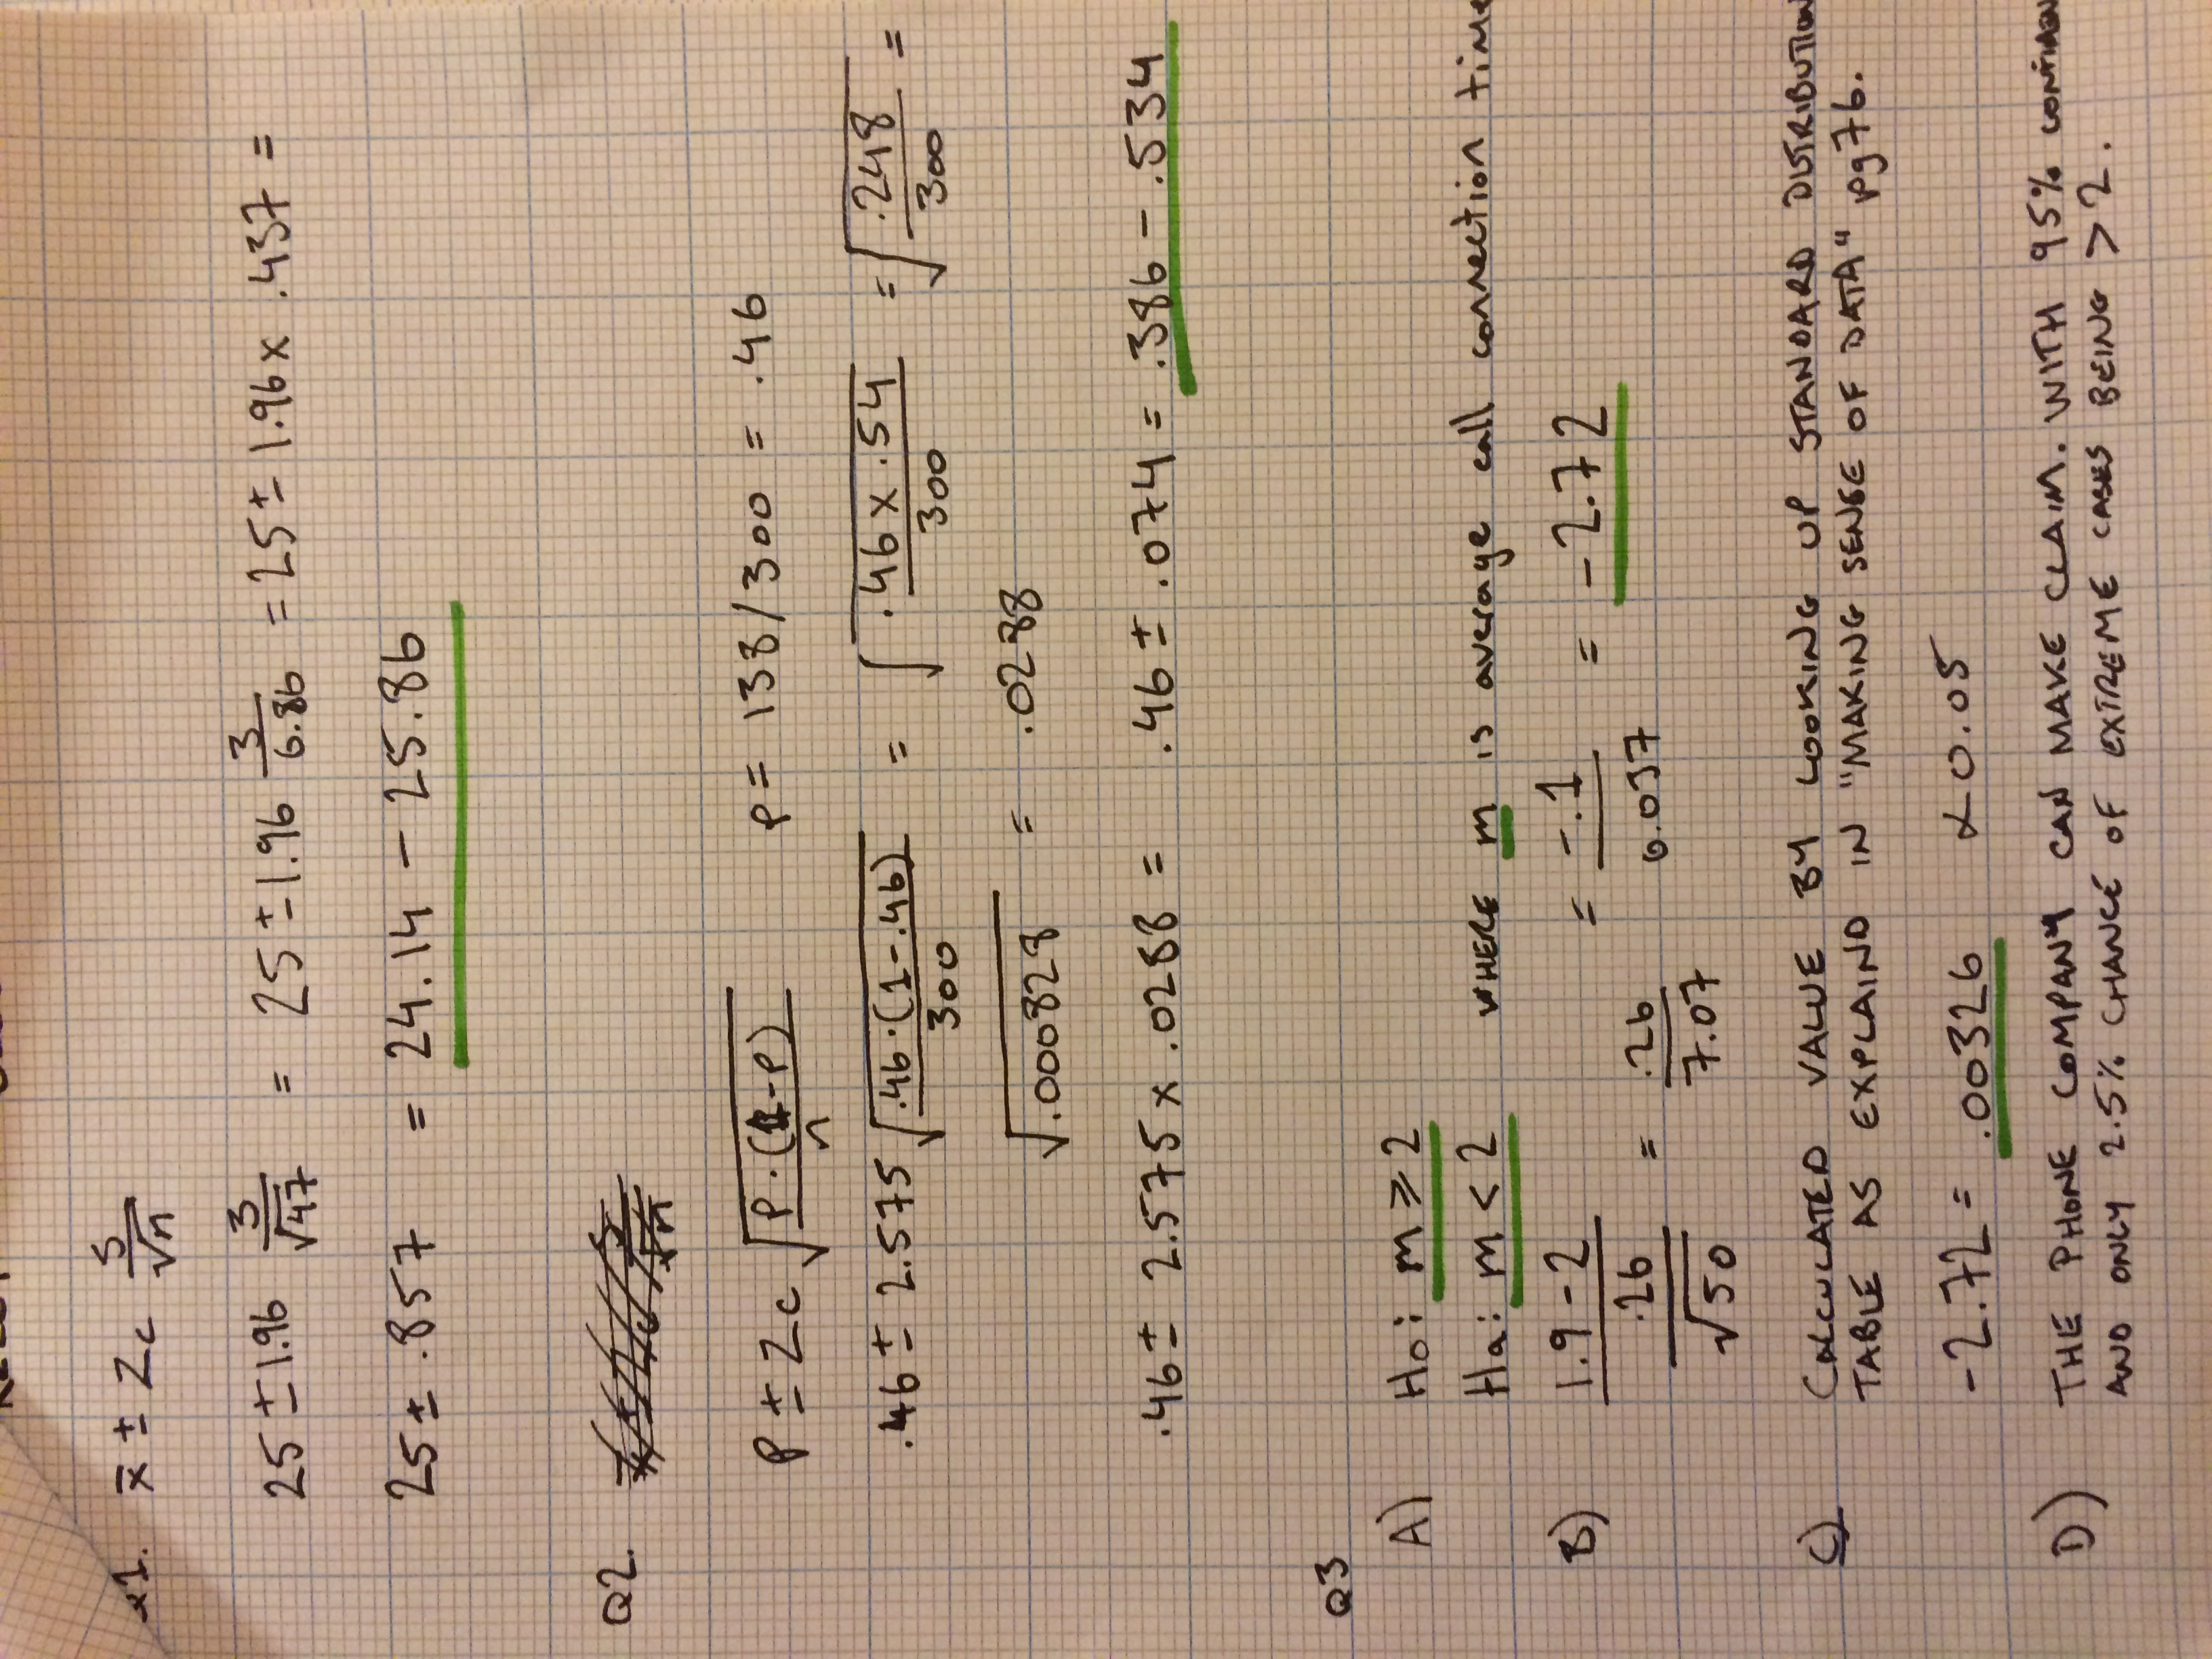 Q1. x̄ ± Zc S/√n
25 ± 1.96 3/√47 = 25 ± 1.96 3/6.86 = 25 ± 1.96 x .437 =
25 ± .857 = 24.14 - 25.86
Q2.
P ± Zc √(P·(1-P)/n) P = 138/300 = .46
.46 ± 2.575 √(.46·(1-.46)/300) = √(.46 x .54/300) = √(.248/300) =
√.000828 = .0288
.46 ± 2.575 x .0288 = .46 ± .074 = .386 - .534
Q3
A) Ho: m ≥ 2
Ha: m < 2 WHERE m is average call connection time
B) (1.9-2)/(.26/√50 = .26/7.07) = -.1/0.037 = -2.72
C) CALCULATED VALUE BY LOOKING UP STANDARD DISTRIBUTION
TABLE AS EXPLAIND IN "MAKING SENSE OF DATA" pg76.
-2.72 = .00326 α0.05
D) THE PHONE COMPANY CAN MAKE CLAIM. WITH 95%
AND ONLY 2.5% CHANCE OF EXTREME CASES BEING > 2.